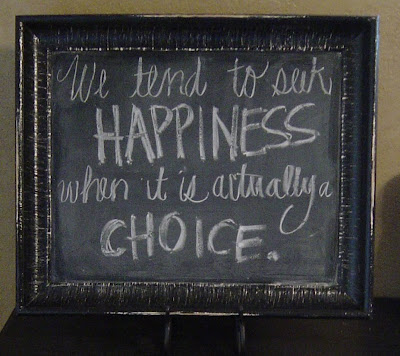 We tend to seek
HAPPINESS
when it is actually a
CHOICE.